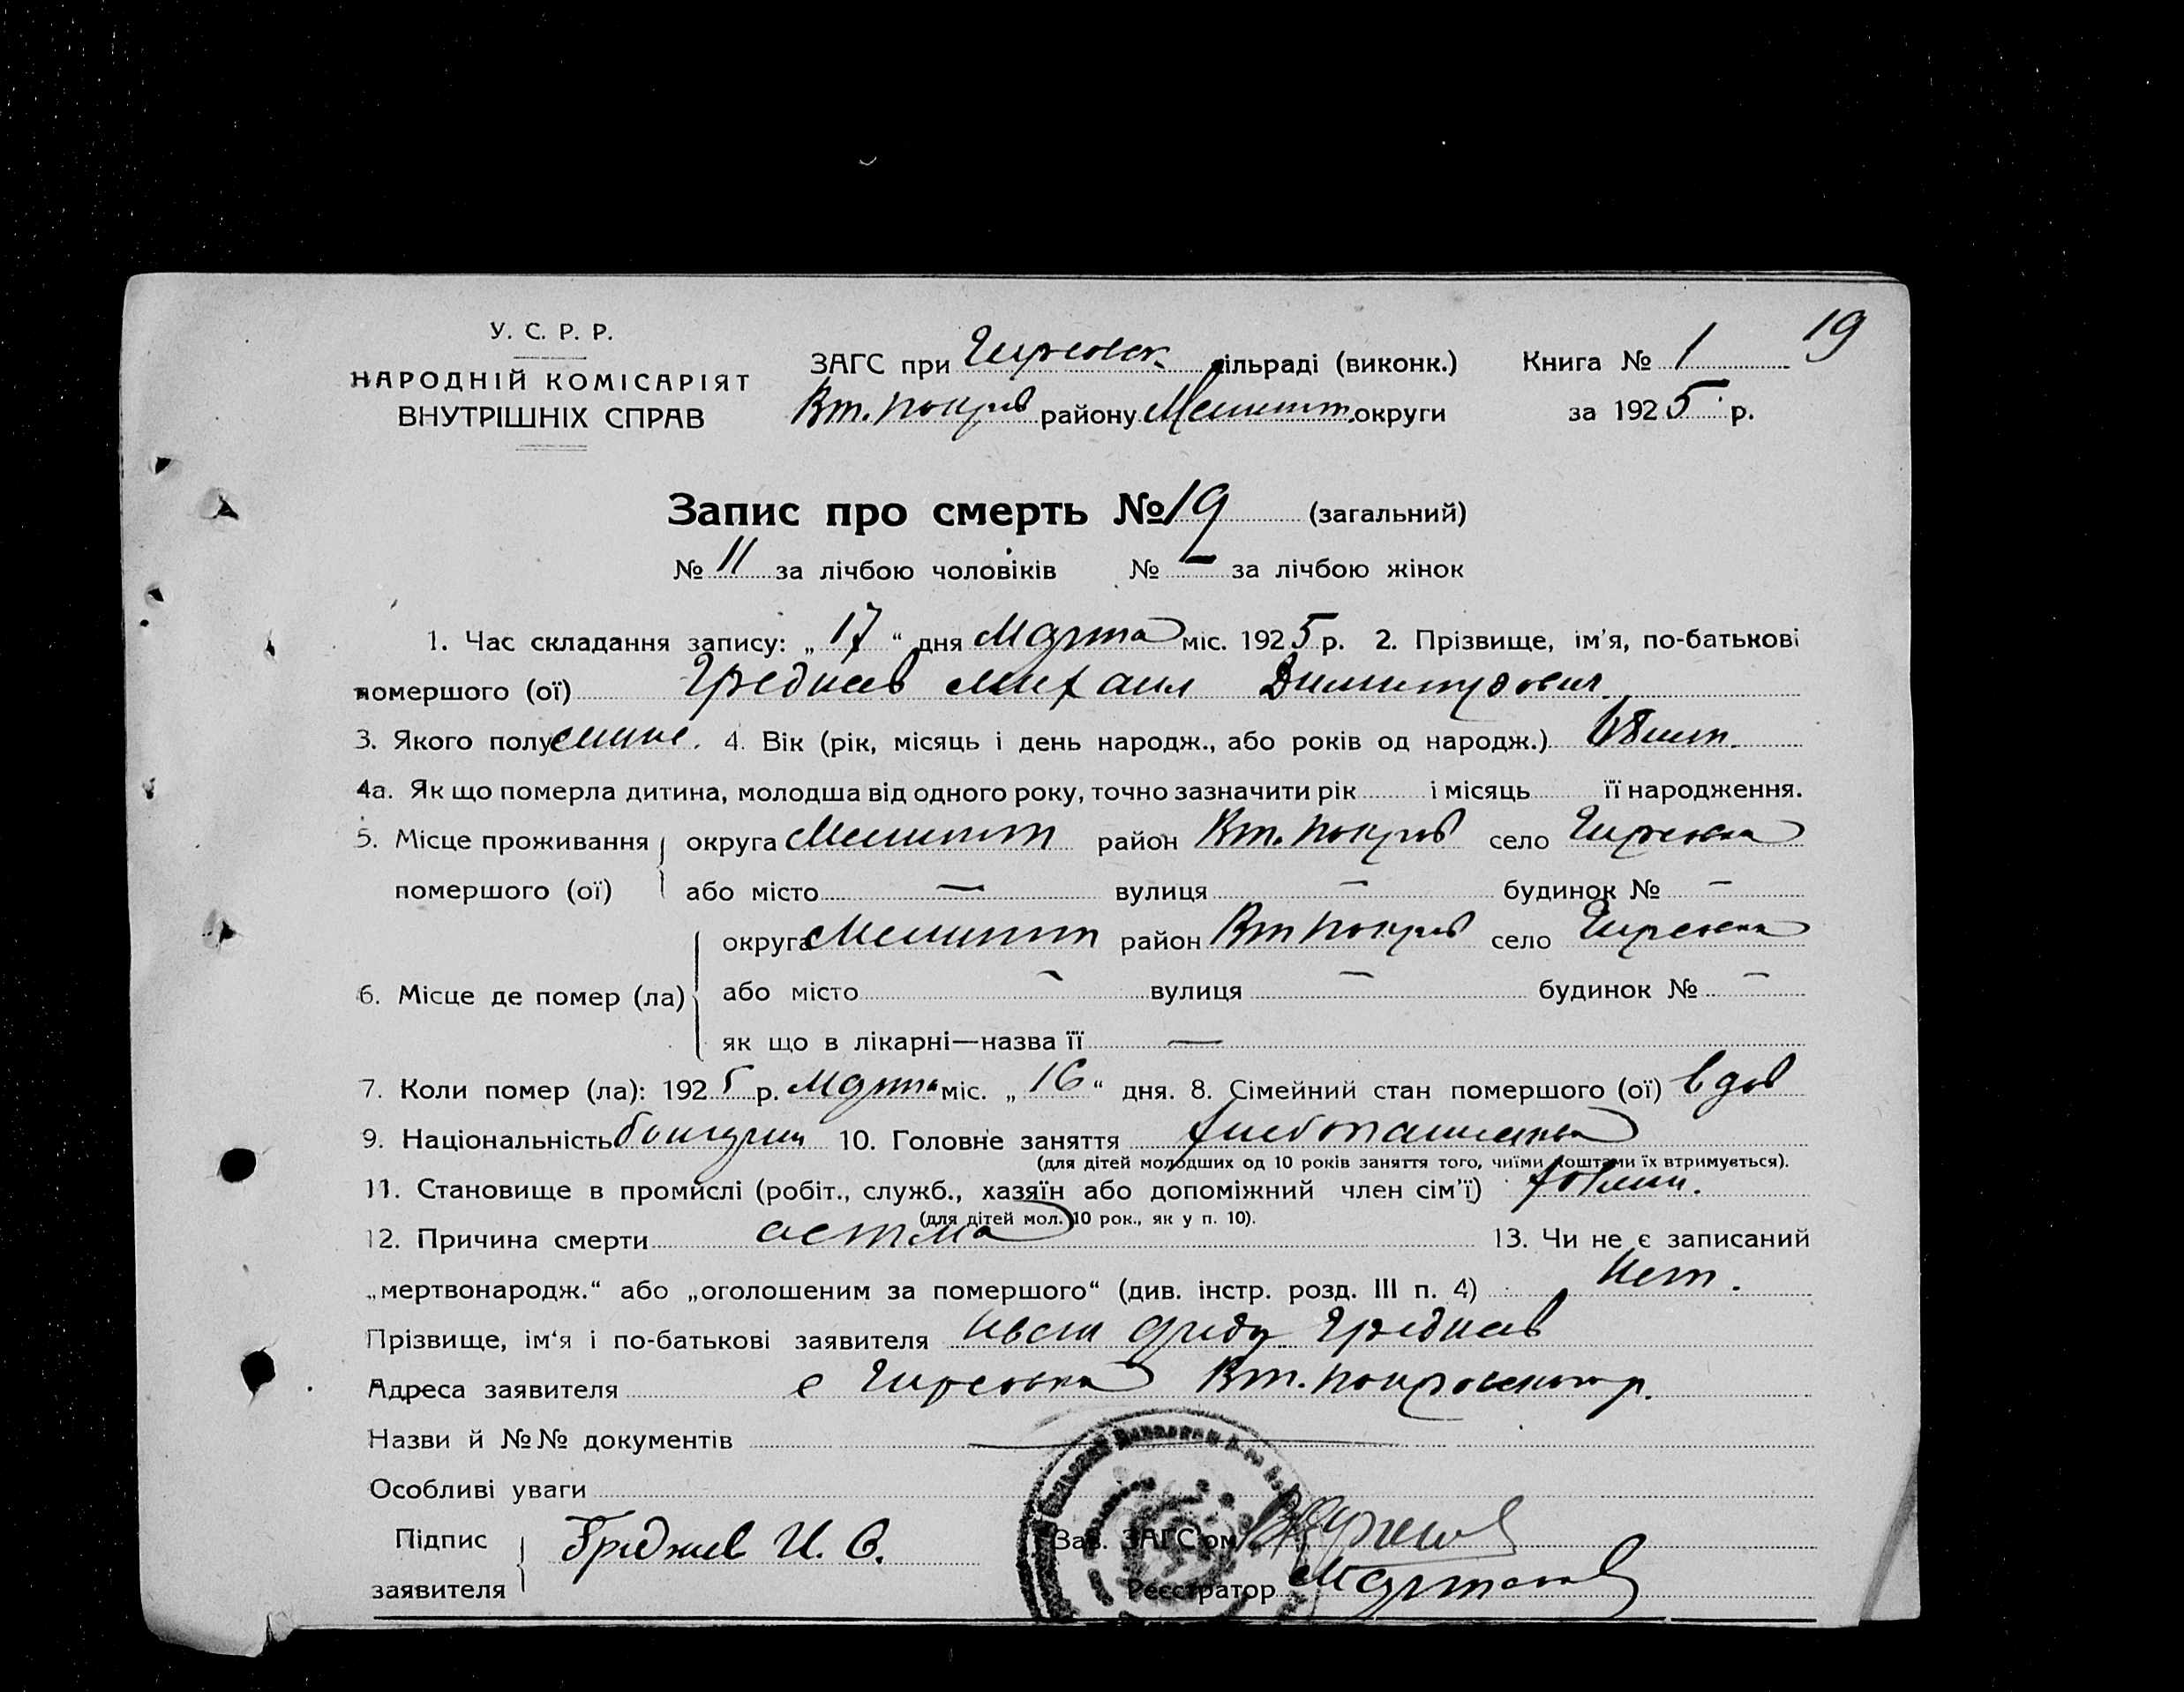 У. С. Р. Р.
НАРОДНІЙ КОМІСАРІЯТ
ВНУТРІШНІХ СПРАВ
ЗАГС при Гирсовск. сільраді (виконк.) Книга № 1 19
Вт. Покров району Мелитт. округи за 1925 р.
Запис про смерть № 19 (загальний)
№ 11 за лічбою чоловіків № — за лічбою жінок
1. Час складання запису: „17“ дня Марта міс. 1925 р. 2. Прізвище, ім'я, по-батькові
помершого (ої) Греджев Михаил Дмитров
3. Якого полу 4. Вік (рік, місяць і день народж., або років од народж.) 68 лет.
4а. Як що померла дитина, молодша від одного року, точно зазначити рік і місяць її народження.
5. Місце проживання округа Мелитт район Вт. Покров село Гирсовка
помершого (ої) або місто — вулиця — будинок № —
округа Мелитт район Вт Покров село Гирсовка
6. Місце де помер (ла) або місто — вулиця — будинок № —
як що в лікарні—назва її —
7. Коли помер (ла): 1925 р. Марта міс. „16“ дня. 8. Сімейний стан помершого (ої) вдов
9. Національність болгарин 10. Головне заняття хлебопашество
(для дітей молодших од 10 років заняття того, чиїми коштами їх втримується).
11. Становище в промислі (робіт., служб., хазяїн або допоміжний член сім'ї) хозяин.
(для дітей мол. 10 рок., як у п. 10).
12. Причина смерти астма 13. Чи не є записаний
„мертвонародж.“ або „оголошеним за помершого“ (див. інстр. розд. III п. 4) Нет.
Прізвище, ім'я і по-батькові заявителя Иван Греджев
Адреса заявителя с Гирсовка Вт. Покровского р.
Назви й №№ документів
Особливі уваги
Підпис
заявителя Греджев И. Ф. Зав. ЗАГС'ом
Реєстратор